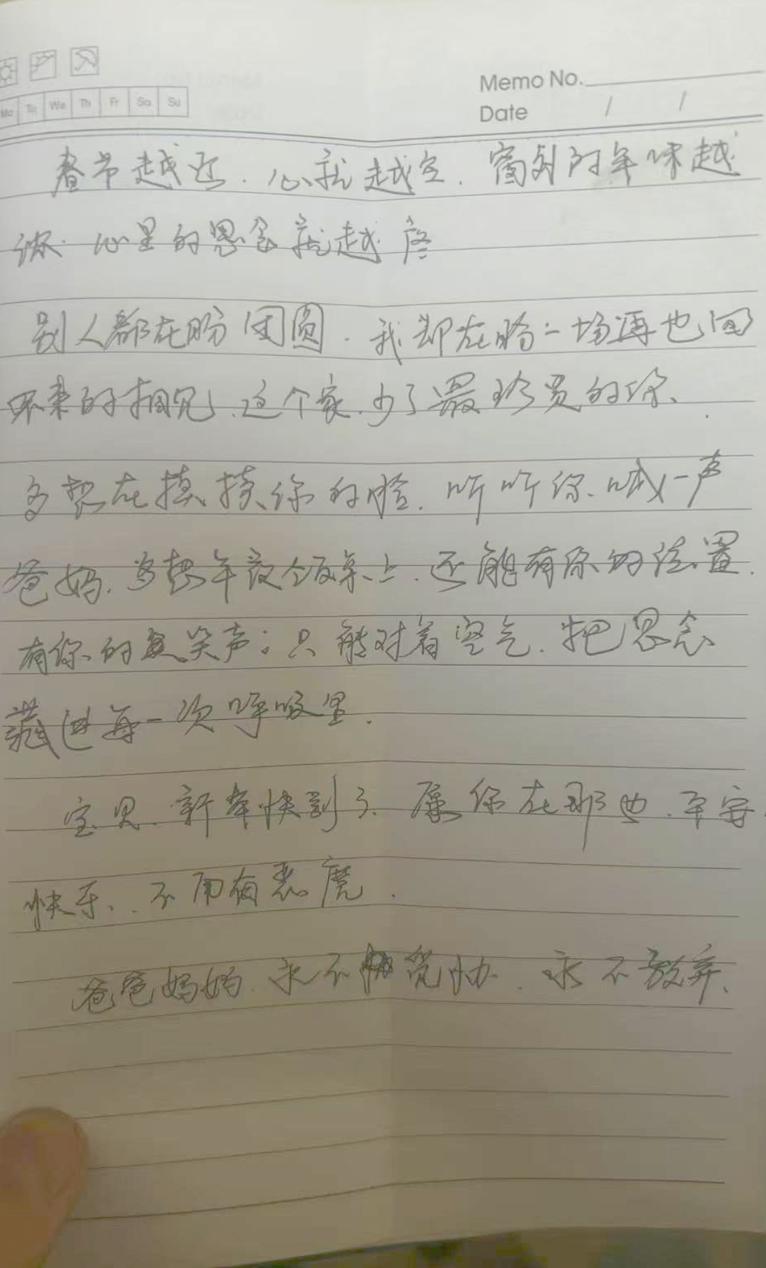 Mo Tu We Th Fr Sa Su
Memo No.
Date / /
春节越近.心就越空.窗外的年味越
浓.心里的思念就越疼
别人都在盼团圆.我却在盼一场再也回
不来的相见.这个家.少了最珍贵的你、
多想在摸摸你的脸.听听你喊一声
爸妈.多想年夜饭桌上.还能有你的位置.
有你的笑声;只能对着空气.把思念
藏进每一次呼吸里.
宝贝.新年快到了.愿你在那边.平安
快乐、.不用有恶魔.
爸爸妈妈.永不妥协.永不放弃.